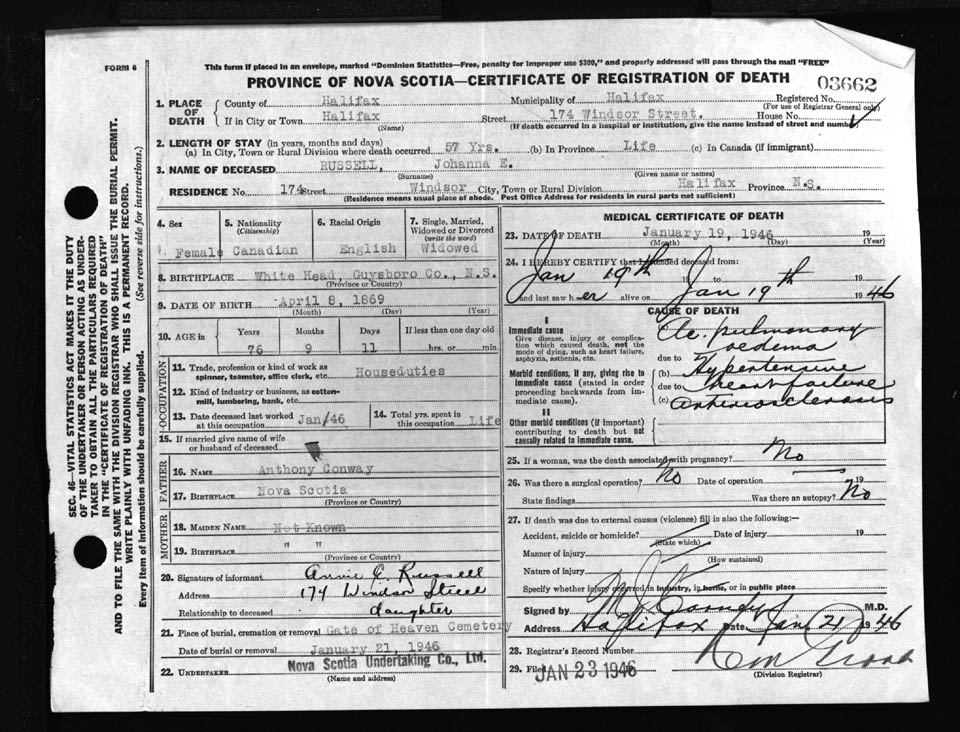 FORM 6
This form if placed in an envelope, marked "Dominion Statistics—Free, penalty for improper use $300," and properly addressed will pass through the mail "FREE"
PROVINCE OF NOVA SCOTIA—CERTIFICATE OF REGISTRATION OF DEATH
03662
SEC. 46—VITAL STATISTICS ACT MAKES IT THE DUTY
OF THE UNDERTAKER OR PERSON ACTING AS UNDER-
TAKER TO OBTAIN ALL THE PARTICULARS REQUIRED
IN THE "CERTIFICATE OF REGISTRATION OF DEATH"
AND TO FILE THE SAME WITH THE DIVISION REGISTRAR WHO SHALL ISSUE THE BURIAL PERMIT.
WRITE PLAINLY WITH UNFADING INK. THIS IS A PERMANENT RECORD.
Every item of information should be carefully supplied. (See reverse side for instructions.)
1. PLACE OF DEATH
County of Halifax Municipality of Halifax Registered No.
(For use of Registrar General only)
If in City or Town Halifax Street 174 Windsor Street. House No.
(Name) (If death occurred in a hospital or institution, give the name instead of street and number)
2. LENGTH OF STAY (in years, months and days)
(a) In City, Town or Rural Division where death occurred 57 Yrs. (b) In Province Life (c) In Canada (if immigrant)
3. NAME OF DECEASED RUSSELL, Johanna E.
(Surname) (Given name or names)
RESIDENCE No. 174 Street Windsor City, Town or Rural Division Halifax Province N.S.
(Residence means usual place of abode. Post Office Address for residents in rural parts not sufficient)
4. Sex Female
5. Nationality (Citizenship) Canadian
6. Racial Origin English
7. Single, Married, Widowed or Divorced (write the word) Widowed
8. BIRTHPLACE White Head, Guysboro Co., N.S.
(Province or Country)
9. DATE OF BIRTH April 8, 1869
(Month) (Day) (Year)
10. AGE in Years Months Days If less than one day old
76 9 11 hrs. or min.
OCCUPATION
11. Trade, profession or kind of work as
spinner, teamster, office clerk, etc. Houseduties
12. Kind of industry or business, as cotton-
mill, lumbering, bank, etc.
13. Date deceased last worked
at this occupation Jan/46
14. Total yrs. spent
in this occupation Life
15. If married give name of wife
or husband of deceased
FATHER
16. NAME Anthony Conway
17. BIRTHPLACE Nova Scotia
(Province or Country)
MOTHER
18. MAIDEN NAME Not Known
19. BIRTHPLACE " "
(Province or Country)
20. Signature of informant Annie C. Russell
Address 174 Windsor Street
Relationship to deceased daughter
21. Place of burial, cremation or removal Gate of Heaven Cemetery
Date of burial or removal January 21, 1946
22. UNDERTAKER Nova Scotia Undertaking Co., Ltd.
(Name and address)
MEDICAL CERTIFICATE OF DEATH
23. DATE OF DEATH January 19, 1946 19
(Month) (Day) (Year)
24. I HEREBY CERTIFY that I attended deceased from:
Jan 19th 19 to Jan 19th 1946
and last saw her alive on
CAUSE OF DEATH
I
Immediate cause
Give disease, injury or complica-
tion which caused death, not the
mode of dying, such as heart failure,
asphyxia, asthenia, etc.
Ac. pulmonary
oedema
due to
Morbid conditions, if any, giving rise to
immediate cause (stated in order
proceeding backwards from im-
mediate cause).
(b) Hypertensive
due to heart failure
(c) arteriosclerosis
II
Other morbid conditions (if important)
contributing to death but not
causally related to immediate cause.
25. If a woman, was the death associated with pregnancy? No
26. Was there a surgical operation? No Date of operation 19
State findings Was there an autopsy? No
27. If death was due to external causes (violence) fill in also the following:—
Accident, suicide or homicide? Date of injury 19
(State which)
Manner of injury
(How sustained)
Nature of injury
Specify whether injury occurred in industry, in home, or in public place
Signed by M.D.
Address Halifax Date Jan 21 1946
28. Registrar's Record Number
29. Filed JAN 23 1946
(Division Registrar)